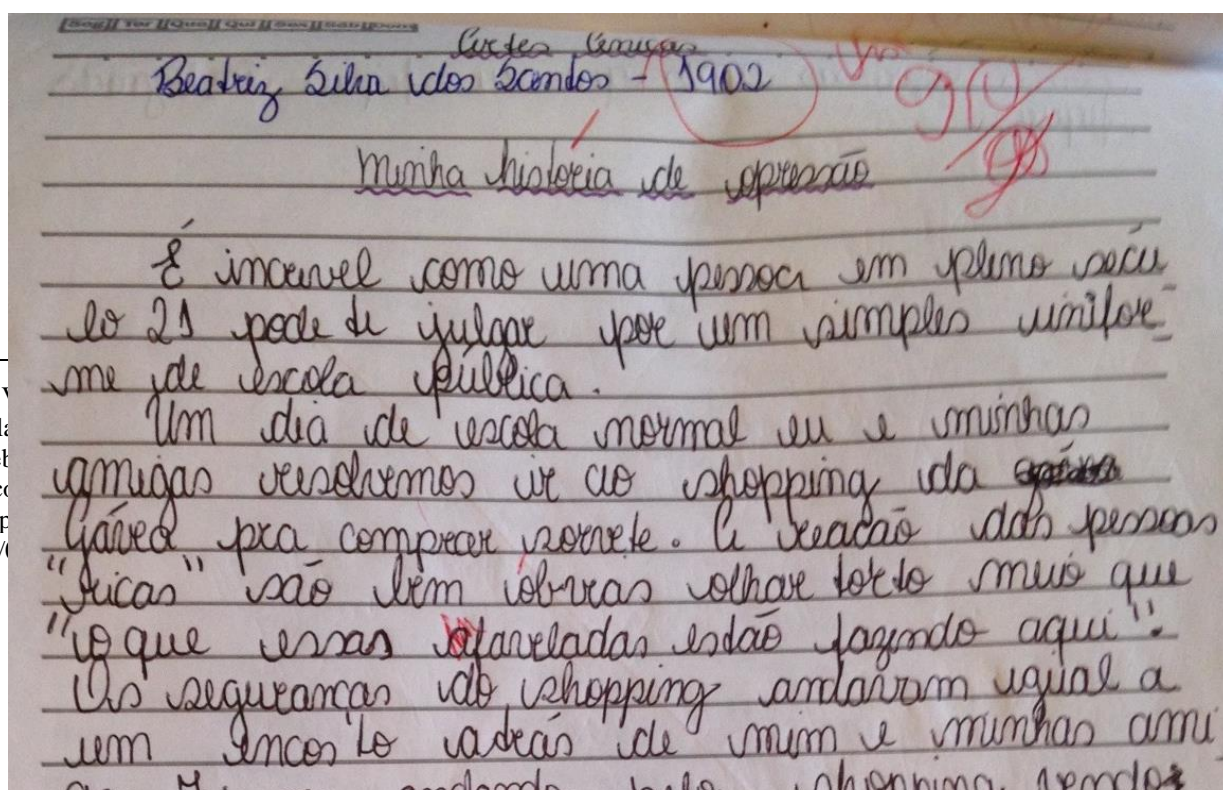 Artes Cênicas
Beatriz Silva dos Santos - 1902
Minha história de opressão
É incrivel como uma pessoa em pleno sécu
lo 21 pode te julgar por um simples unifor-
me de escola pública.
Um dia de escola normal eu e minhas
amigas resolvemos ir ao shopping da
Gávea pra comprar sorvete. A reacão das pessoas
"ricas" são bem óbvias olhar torto meio que
"o que essas faveladas estão fazendo aqui".
Os seguranças do shopping andavam igual a
um encosto atrás de mim e minhas ami
shopping